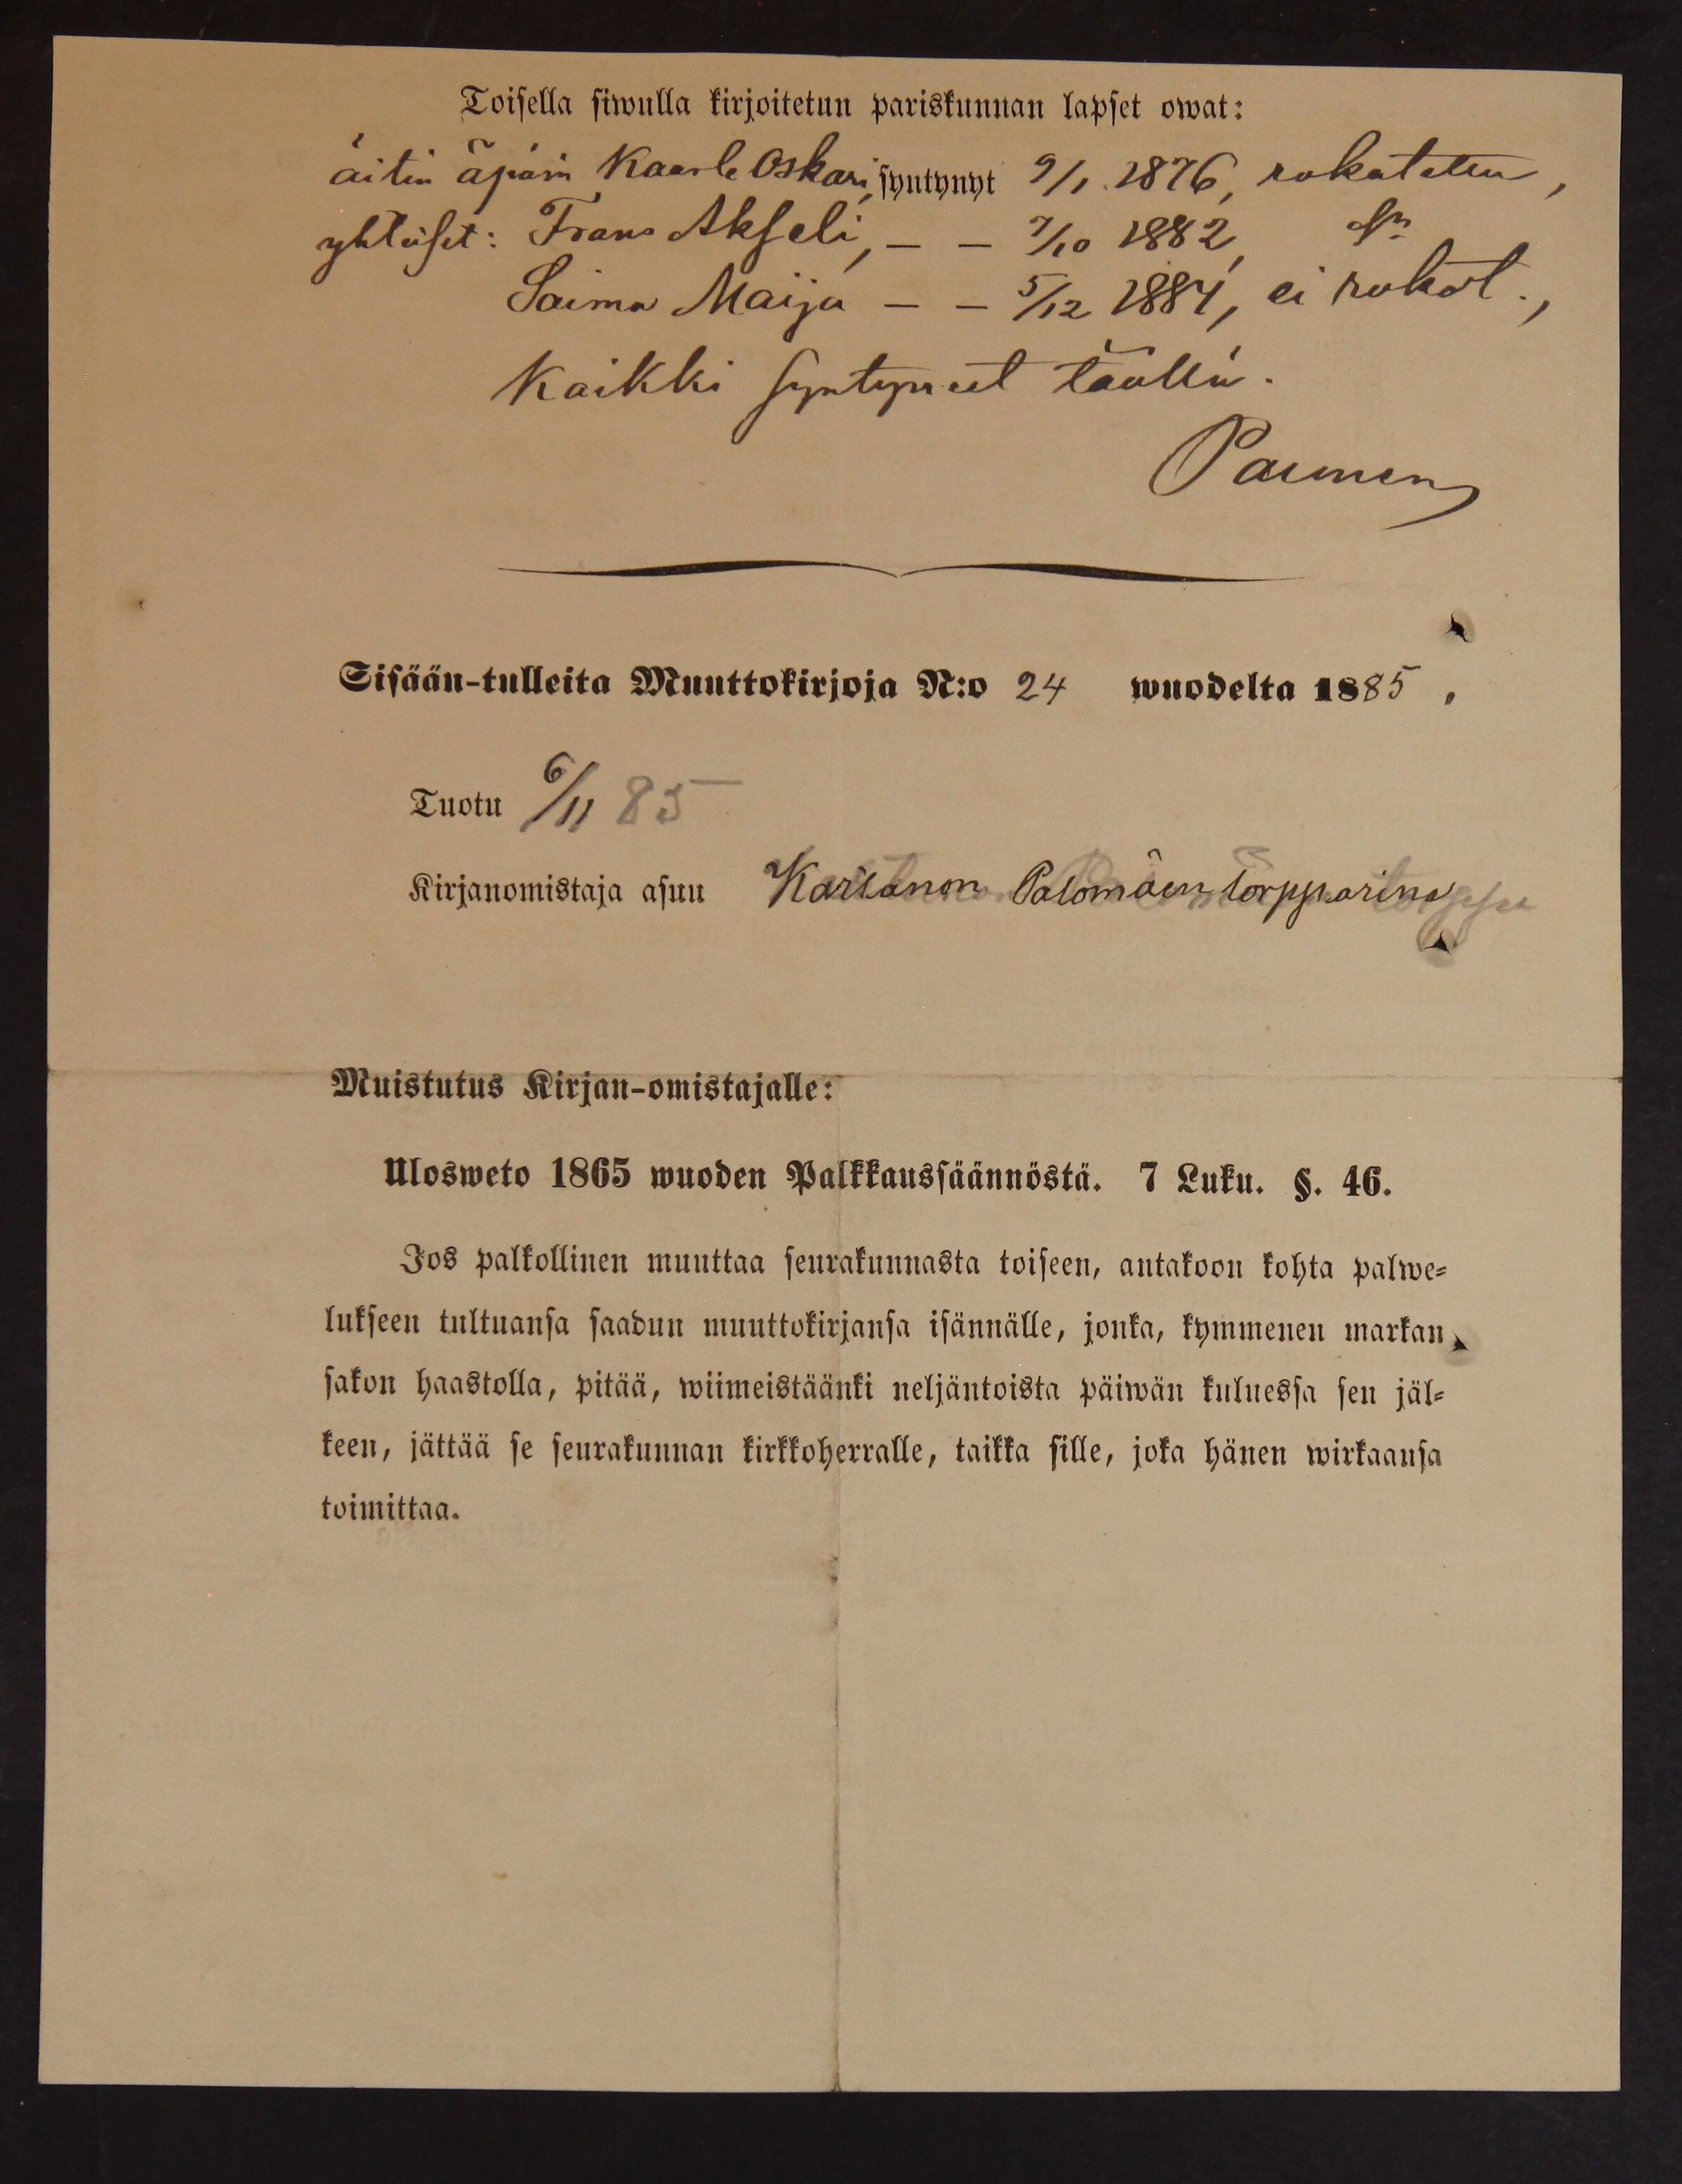 Toisella siwulla kirjoitetun pariskunnan lapset owat:
äitin äpärä Kaarle Oskari, syntynyt 9/1 1876, rokotettu,
yhteiset: Frans Akseli, — — 7/10 1882, Sn
Saima Maija — — 5/12 1884, ei rokot.,
Kaikki syntyneet täällä.
Paunen
Sisään-tulleita Muuttokirjoja N:o 24 wuodelta 1885.
Tuotu 6/11 85
Kirjanomistaja asuu Karsanon Palomäen torpparina
Muistutus Kirjan-omistajalle:
Ulosweto 1865 wuoden Palkkaussäännöstä. 7 Luku. §. 46.
Jos palkollinen muuttaa seurakunnasta toiseen, antakoon kohta palwe-
lukseen tultuansa saadun muuttokirjansa isännälle, jonka, kymmenen markan
sakon haastolla, pitää, wiimeistäänki neljäntoista päiwän kuluessa sen jäl-
keen, jättää se seurakunnan kirkkoherralle, taikka sille, joka hänen wirkaansa
toimittaa.